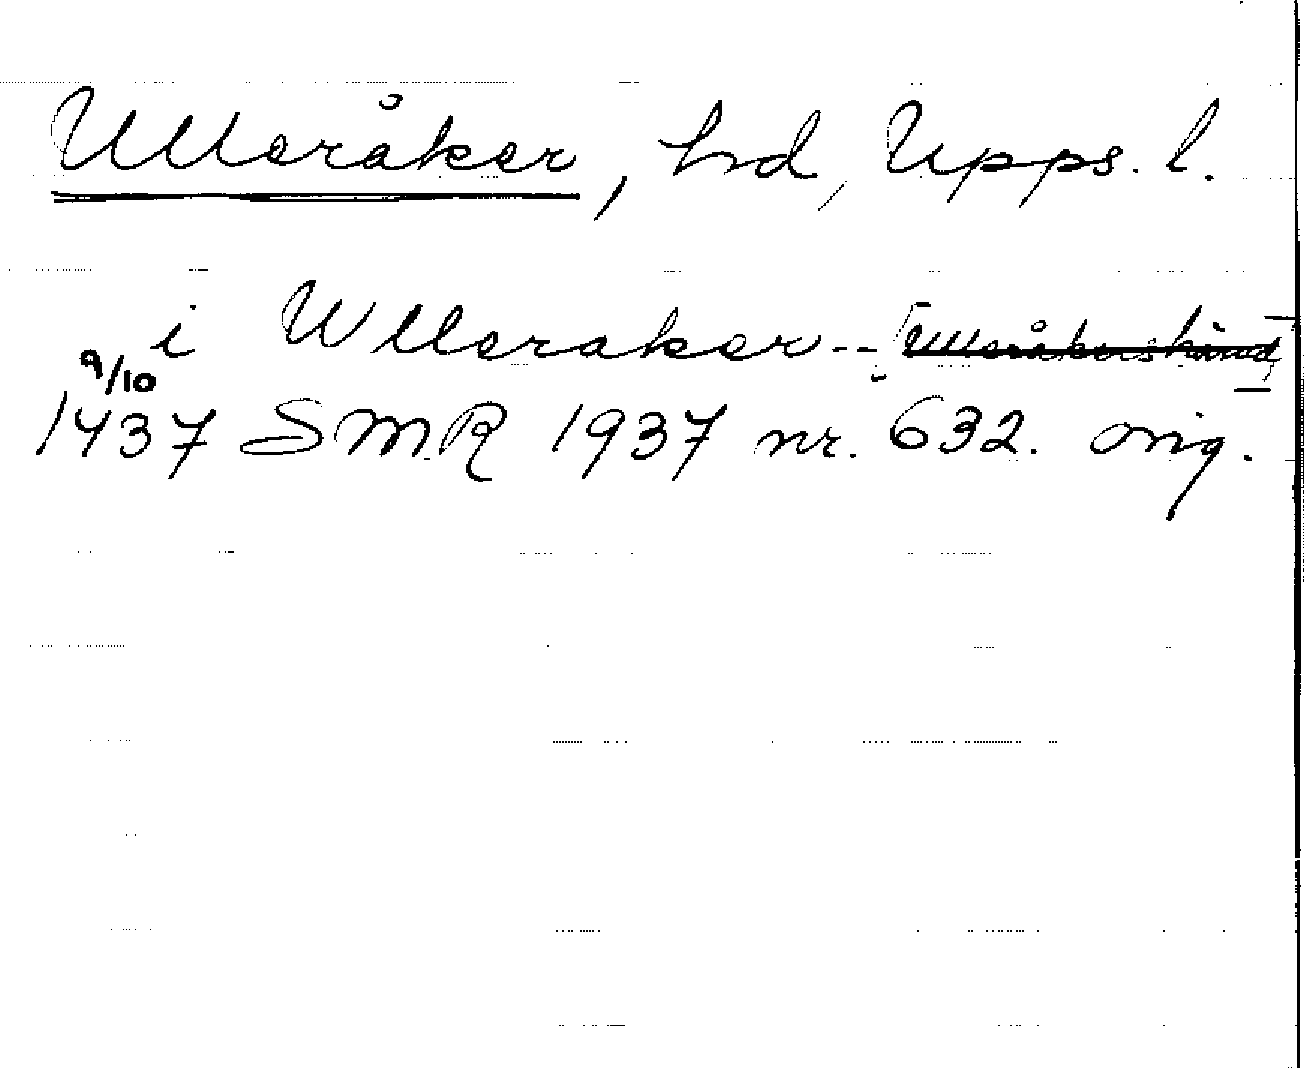 Ulleråker, hd, Upps. l.
i Wlleraker -- [Ulleråkers härad]
9/10
1437 SMR 1937 nr. 632. orig.